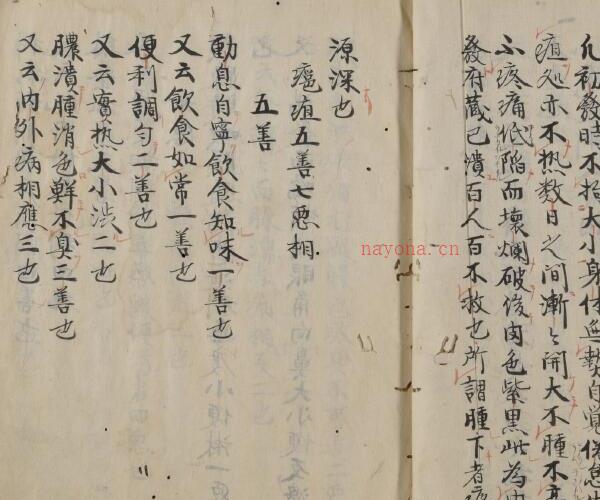 凡初發時不拘大小身体無熱自覚倦怠
疽処亦不热数日之间漸〻開大不腫不高
不疼痛低陷而壊爛破後肉色紫黒此為内
發府蔵已潰百人百不救也所謂腫下者
源深也
癰疽五善七悪相
五善
動息自寧飲食知味一善也
又云飲食如常一善也
便利調匀二善也
又云實热大小渋二也
膿潰腫消色鮮不臭三善也
又云内外病相應三也
nayona.cn